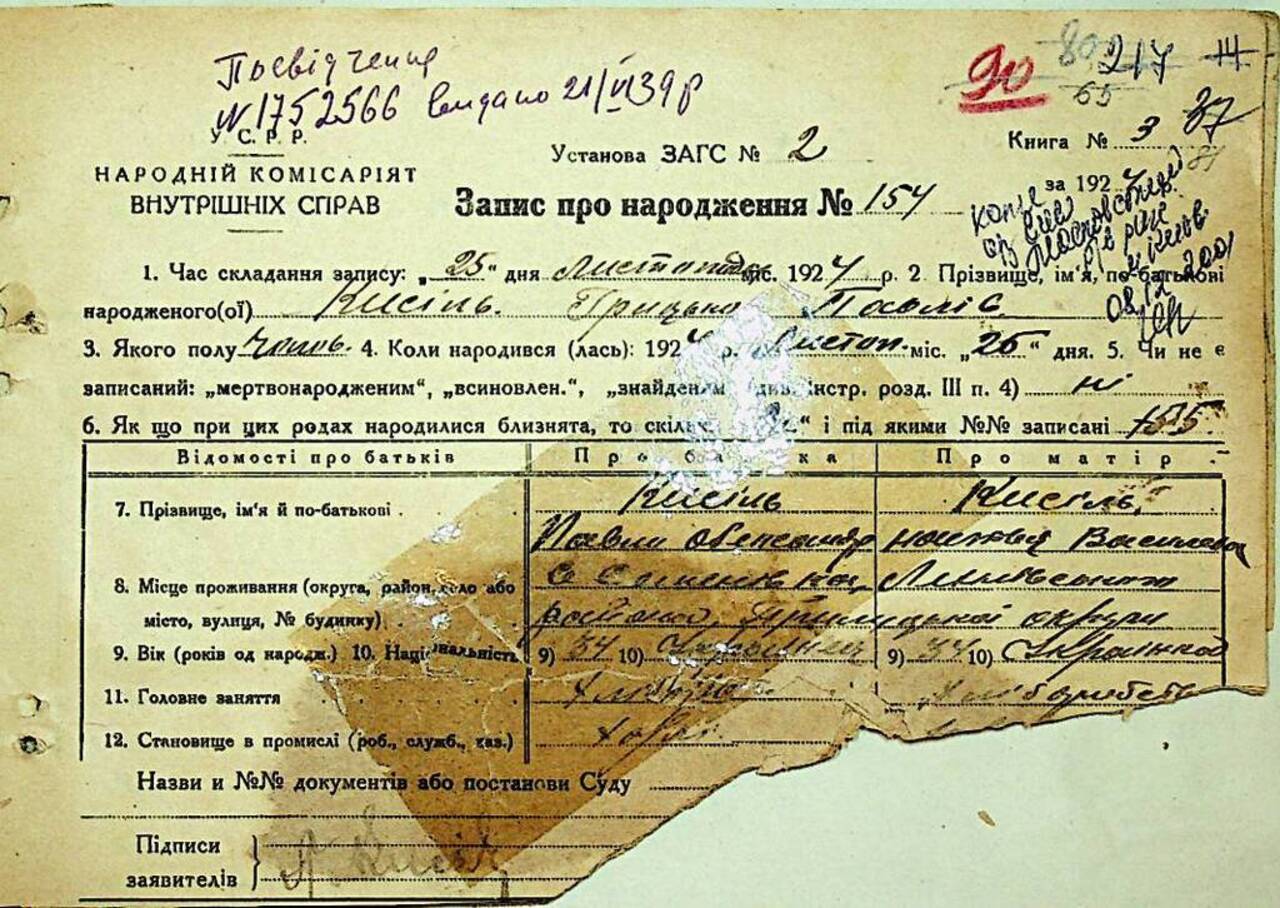 Посвідчення
№ 1752566 видано 21/VI 39 р
90 80 65 217 14
У. С. Р. Р.
НАРОДНІЙ КОМІСАРІЯТ
ВНУТРІШНІХ СПРАВ
Установа ЗАГС № 2
Книга № 3 37
за 192
Запис про народження № 154
1. Час складання запису: „25“ дня Листопада міс. 1924 р. 2 Прізвище, ім'я, по-батькові
народженого(ої) Кисіль Грицько Павлів
3. Якого полу чолов. 4. Коли народився (лась): 1924 р. Листоп. міс. „ “ дня. 5. Чи не є
записаний: „мертвонародженим“, „всиновлен.“, „знайденим (див. інстр. розд. III п. 4) ні
6. Як що при цих родах народилися близнята, то скільк “ і під якими №№ записані 155
Відомості про батьків
Про батька
Про матір
7. Прізвище, ім'я й по-батькові
Кисіль
Кисіль
Павло Олександр
Василівна
8. Місце проживання (округа, район, село або
місто, вулиця, № будинку)
району, Прилуцької округи
9. Вік (років од народж.) 10. Національність
9) 34 10) Українець
9) 34 10) Українка
11. Головне заняття
хліборобств
12. Становище в промислі (роб., служб., хаз.)
Назви и №№ документів або постанови Суду
Підписи
заявителів
Кисіль